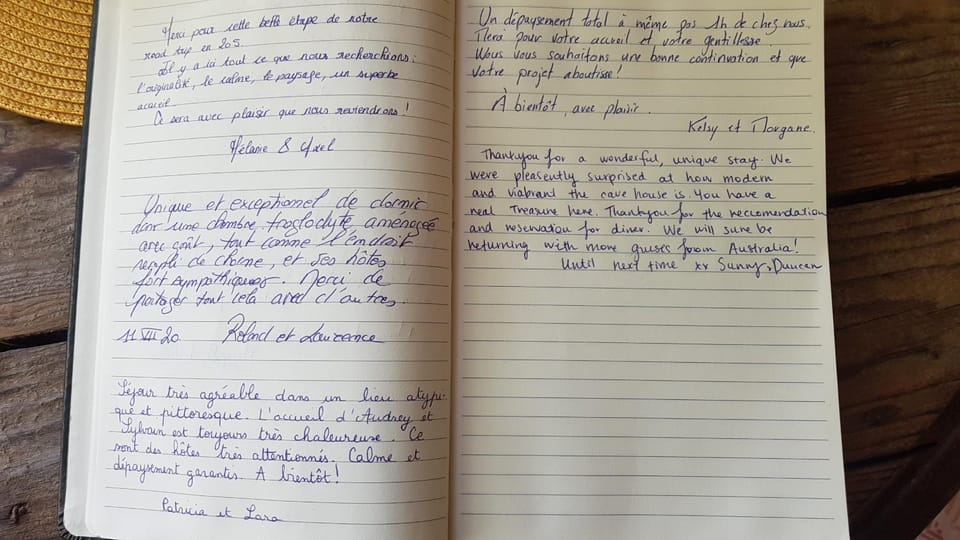 Merci pour cette belle étape de notre
road trip en 205.
Il y a ici tout ce que nous recherchions :
l'originalité, le calme, le paysage, un superbe
accueil
Ce sera avec plaisir que nous reviendrons !
Mélanie & Axel
Unique et exceptionnel de dormir
dans une chambre troglodyte aménagée
avec goût, tout comme l'endroit
rempli de charme, et ses hôtes
fort sympathiques. Merci de
partager tout cela avec d'autres.
11 VII 20 Roland et Laurence
Séjour très agréable dans un lieu atypi-
que et pittoresque. L'accueil d'Audrey et
Sylvain est toujours très chaleureuse. Ce
sont des hôtes très attentionnés. Calme et
dépaysement garantis. A bientôt !
Patricia et Lara
Un dépaysement total à même pas 1h de chez nous.
Merci pour votre accueil et votre gentillesse
Nous vous souhaitons une bonne continuation et que
votre projet aboutisse !
À bientôt, avec plaisir.
Kelsy et Morgane.
Thankyou for a wonderful, unique stay. We
were pleasently surprised at how modern
and viabrant the cave house is. You have a
real treasure here. Thankyou for the reccomendation
and reservation for diner. We will sure be
returning with more guses from Australia!
Until next time xx Sunny, Duncan